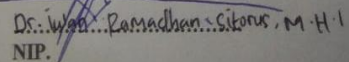 Dr. Iwan Ramadhan Sitorus, M.H.I
NIP.